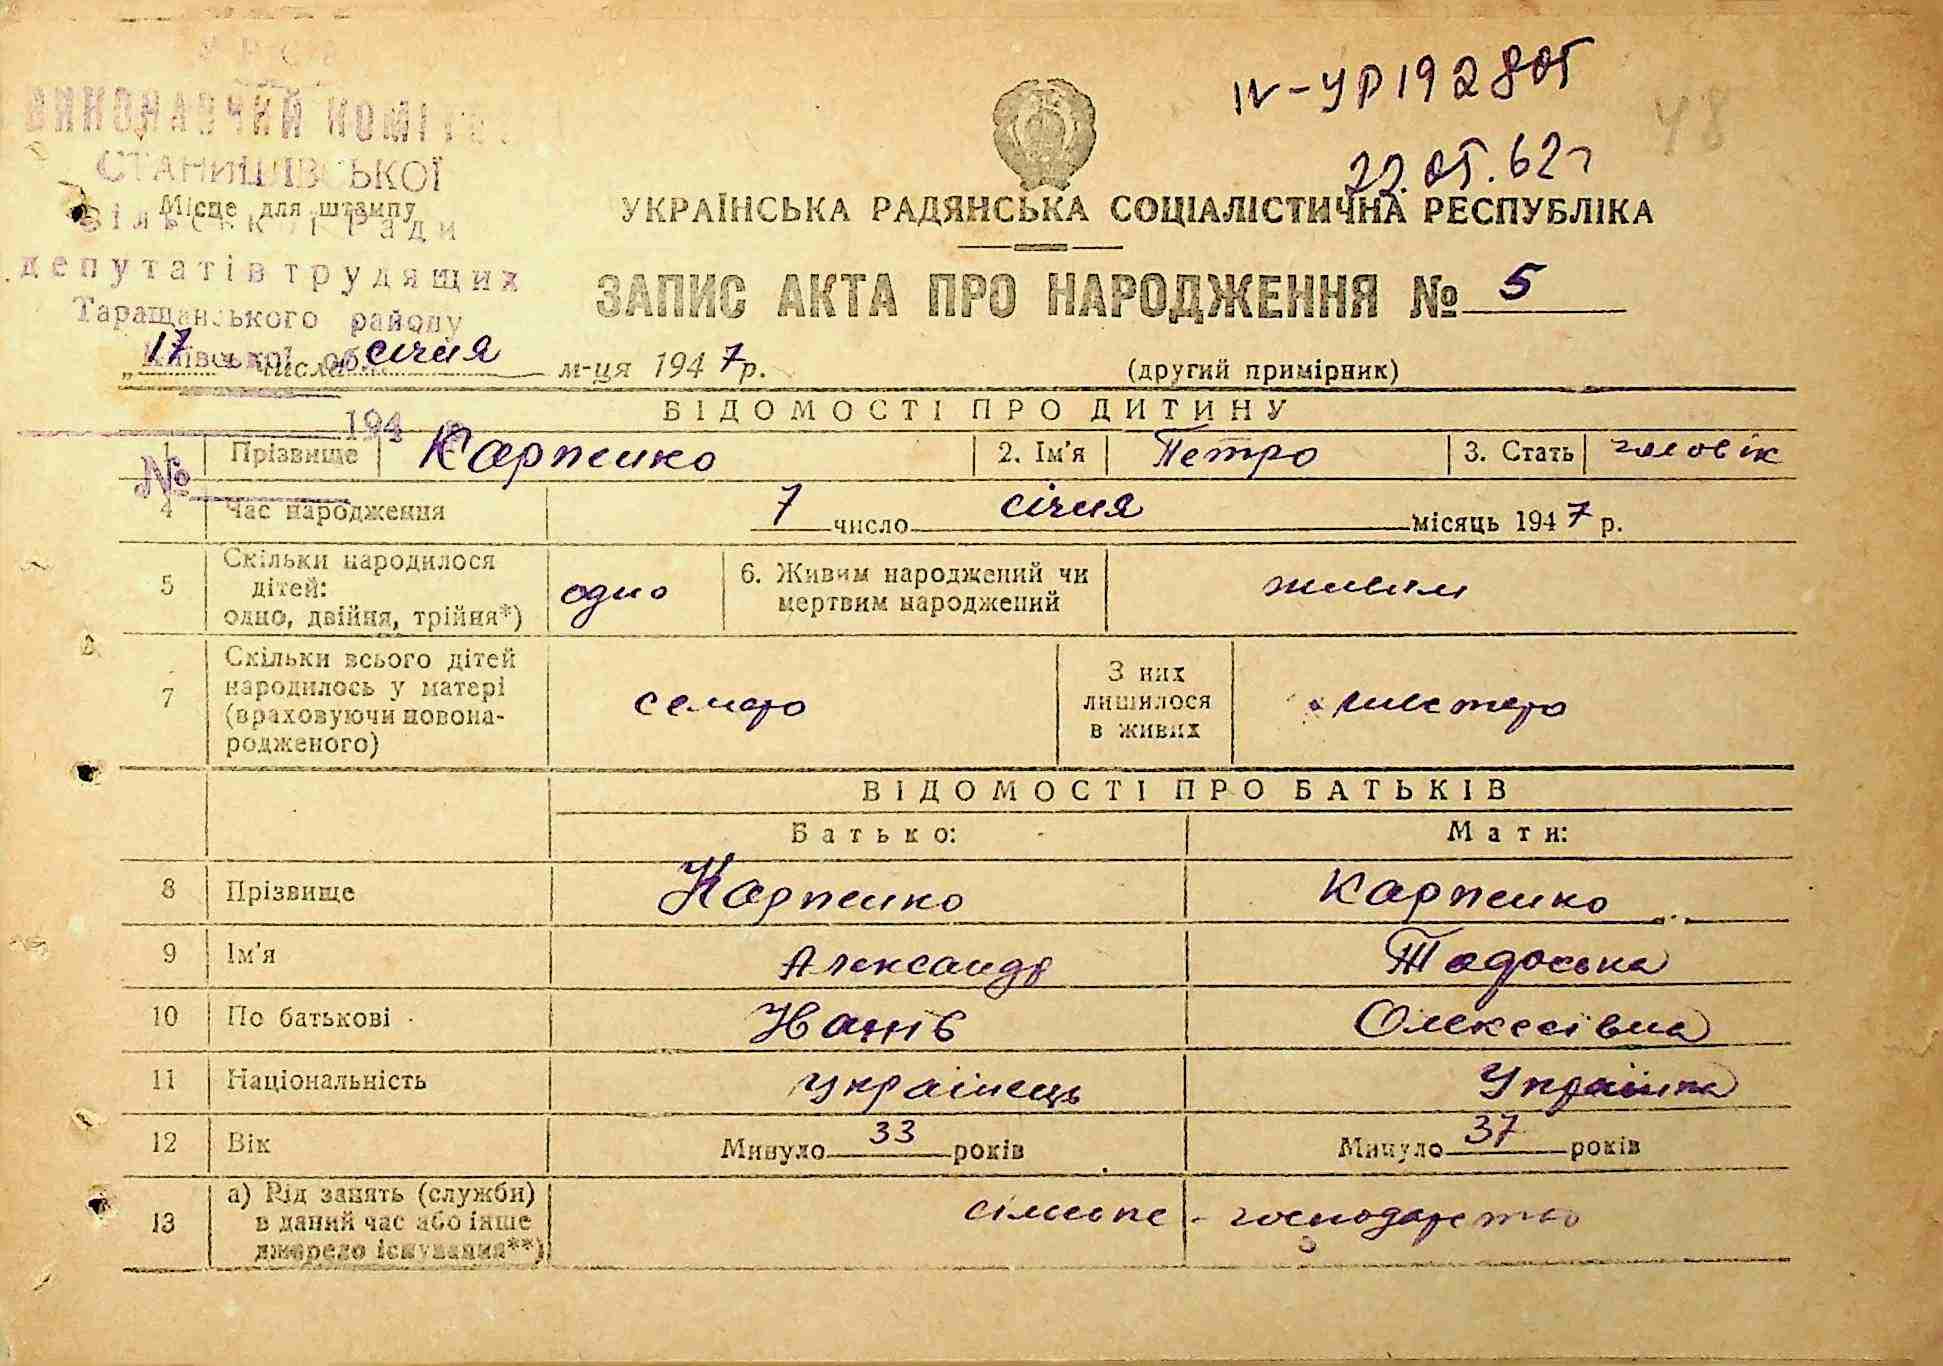 УРСР
ВИКОНАВЧИЙ КОМІТЕТ
СТАНИШІВСЬКОЇ
Місце для штампу
сільської Ради
депутатів трудящих
Таращанського району
Київської обл.
194
№
IV-УР 192805
22.05.62г
48
УКРАЇНСЬКА РАДЯНСЬКА СОЦІАЛІСТИЧНА РЕСПУБЛІКА
ЗАПИС АКТА ПРО НАРОДЖЕННЯ № 5
„17" числа січня м-ця 1947 р. (другий примірник)
ВІДОМОСТІ ПРО ДИТИНУ
1 Прізвище Карпенко 2. Ім'я Петро 3. Стать чоловік
4 Час народження 7 число січня місяць 1947 р.
5 Скільки народилося
дітей:
одно, двійня, трійня*) одно 6. Живим народжений чи
мертвим народжений живим
7 Скільки всього дітей
народилось у матері
(враховуючи новона-
родженого) семеро З них
лишилося
в живих шестеро
ВІДОМОСТІ ПРО БАТЬКІВ
Батько: Мати:
8 Прізвище Карпенко Карпенко
9 Ім'я Александр Тодоська
10 По батькові Іванів Олексеівна
11 Національність Украінець Украінка
12 Вік Минуло 33 років Минуло 37 років
13 а) Рід занять (служби)
в даний час або інше
джерело існування**) сільське - господарство